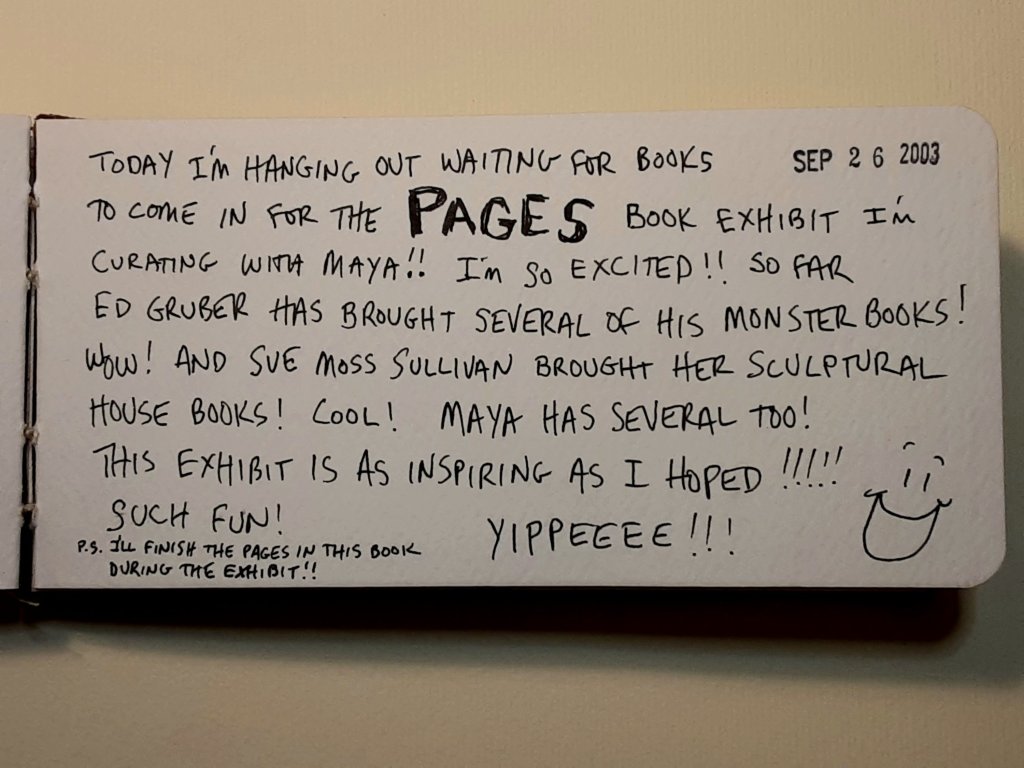 TODAY I'M HANGING OUT WAITING FOR BOOKS SEP 26 2003
TO COME IN FOR THE PAGES BOOK EXHIBIT I'M
CURATING WITH MAYA!! I'M SO EXCITED!! SO FAR
ED GRUBER HAS BROUGHT SEVERAL OF HIS MONSTER BOOKS!
WOW! AND SUE MOSS SULLIVAN BROUGHT HER SCULPTURAL
HOUSE BOOKS! COOL! MAYA HAS SEVERAL TOO!
THIS EXHIBIT IS AS INSPIRING AS I HOPED !!!!!
SUCH FUN! YIPPEEEE!!!
P.S. I'LL FINISH THE PAGES IN THIS BOOK
DURING THE EXHIBIT!!